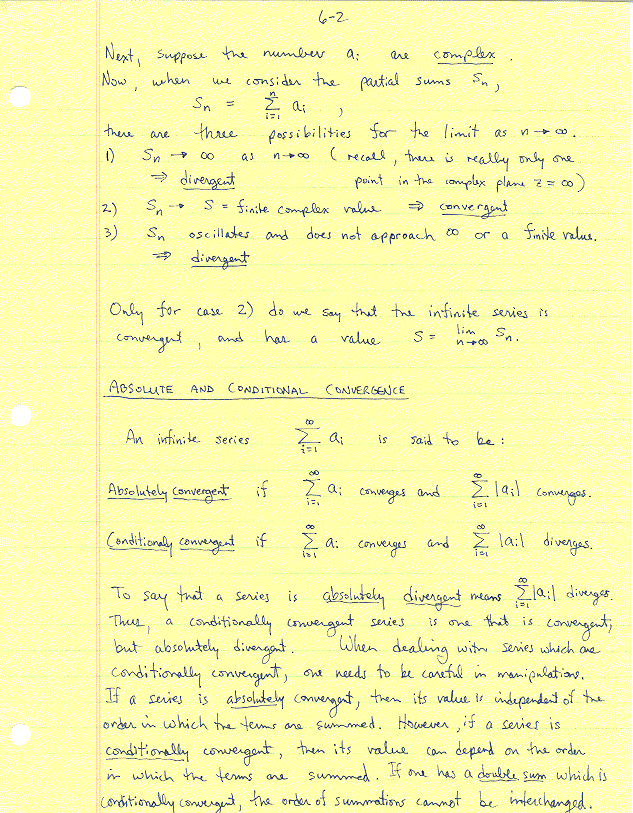 6-2
Next, suppose the number aᵢ are complex.
Now, when we consider the partial sums Sₙ,
Sₙ = ∑ᵢ₌₁ⁿ aᵢ ,
there are three possibilities for the limit as n → ∞.
1) Sₙ → ∞ as n→∞ (recall, there is really only one
⇒ divergent point in the complex plane z = ∞)
2) Sₙ → S = finite complex value ⇒ convergent
3) Sₙ oscillates and does not approach ∞ or a finite value.
⇒ divergent
Only for case 2) do we say that the infinite series is
convergent, and has a value S = lim n→∞ Sₙ.
ABSOLUTE AND CONDITIONAL CONVERGENCE
An infinite series ∑ᵢ₌₁^∞ aᵢ is said to be :
Absolutely convergent if ∑ᵢ₌₁^∞ aᵢ converges and ∑ᵢ₌₁^∞ |aᵢ| converges.
Conditionaly convergent if ∑ᵢ₌₁^∞ aᵢ converges and ∑ᵢ₌₁^∞ |aᵢ| diverges.
To say that a series is absolutely divergent means ∑ᵢ₌₁^∞ |aᵢ| diverges.
Thus, a conditionally convergent series is one that is convergent,
but absolutely divergent. When dealing with series which are
conditionally convergent, one needs to be careful in manipulations.
If a series is absolutely convergent, then its value is independent of the
order in which the terms are summed. However, if a series is
conditionally convergent, then its value can depend on the order
in which the terms are summed. If one has a double sum which is
conditionally convergent, the order of summations cannot be interchanged.